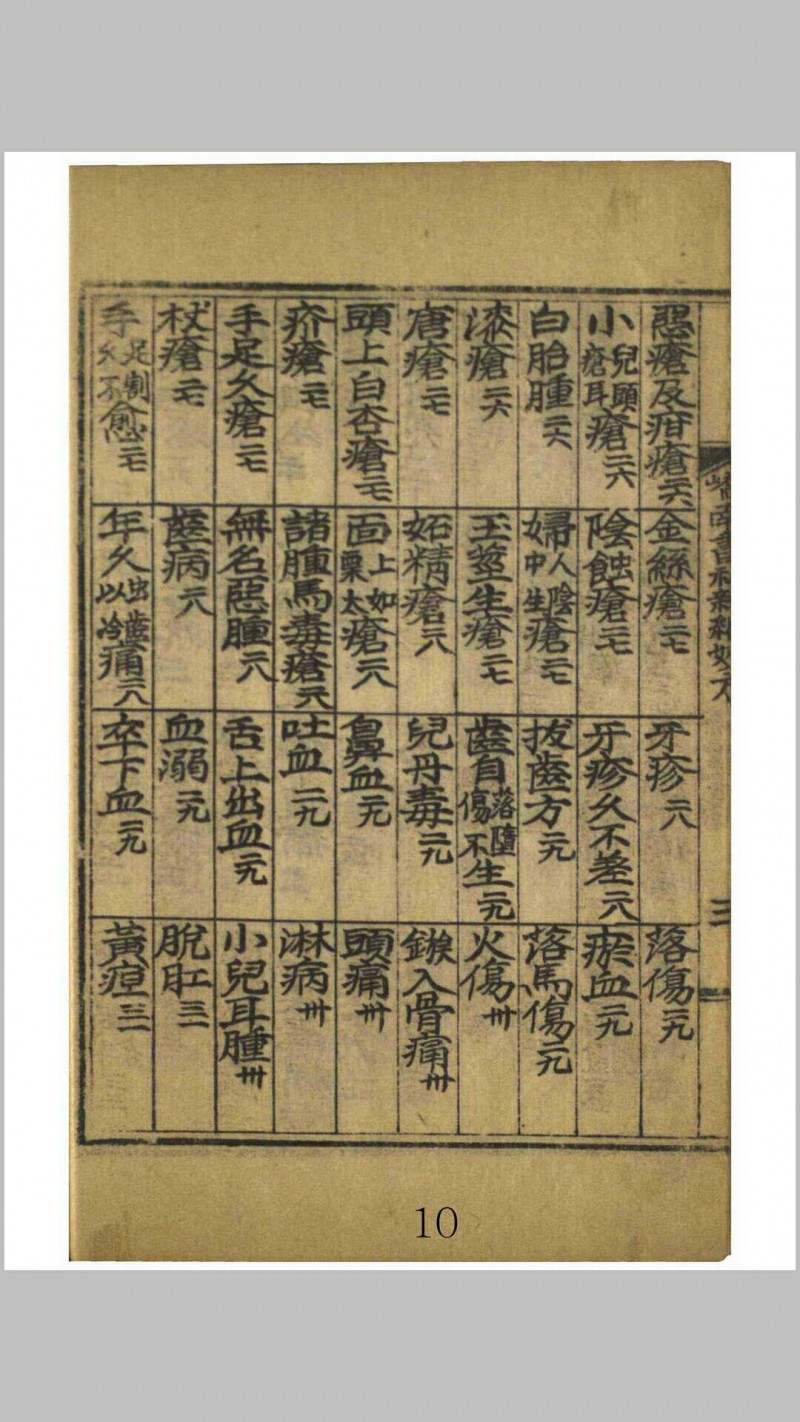 惡瘡及疳瘡二六
小兒頭瘡耳瘡二六
白胎腫二六
漆瘡二六
唐瘡二七
頭上白杏瘡二七
疥瘡二七
手足久瘡二七
杖瘡二七
手足割久不愈二七
金絲瘡二七
陰蝕瘡二七
婦人陰中生瘡二七
玉莖生瘡二七
妬精瘡二八
面上如粟太瘡二八
諸腫馬毒瘡二八
無名惡腫二八
齒病二八
年久出齒以冷痛二八
牙疼二八
牙疼久不差二八
拔齒方二九
齒自落墮傷不生二九
兒丹毒二九
鼻血二九
吐血二九
舌上出血二九
血溺二九
卒下血二九
落傷二九
瘀血二九
落馬傷二九
火傷卅
鏃入骨痛卅
頭痛卅
淋病卅
小兒耳腫卅
脫肛三一
黃疸三一
三
10